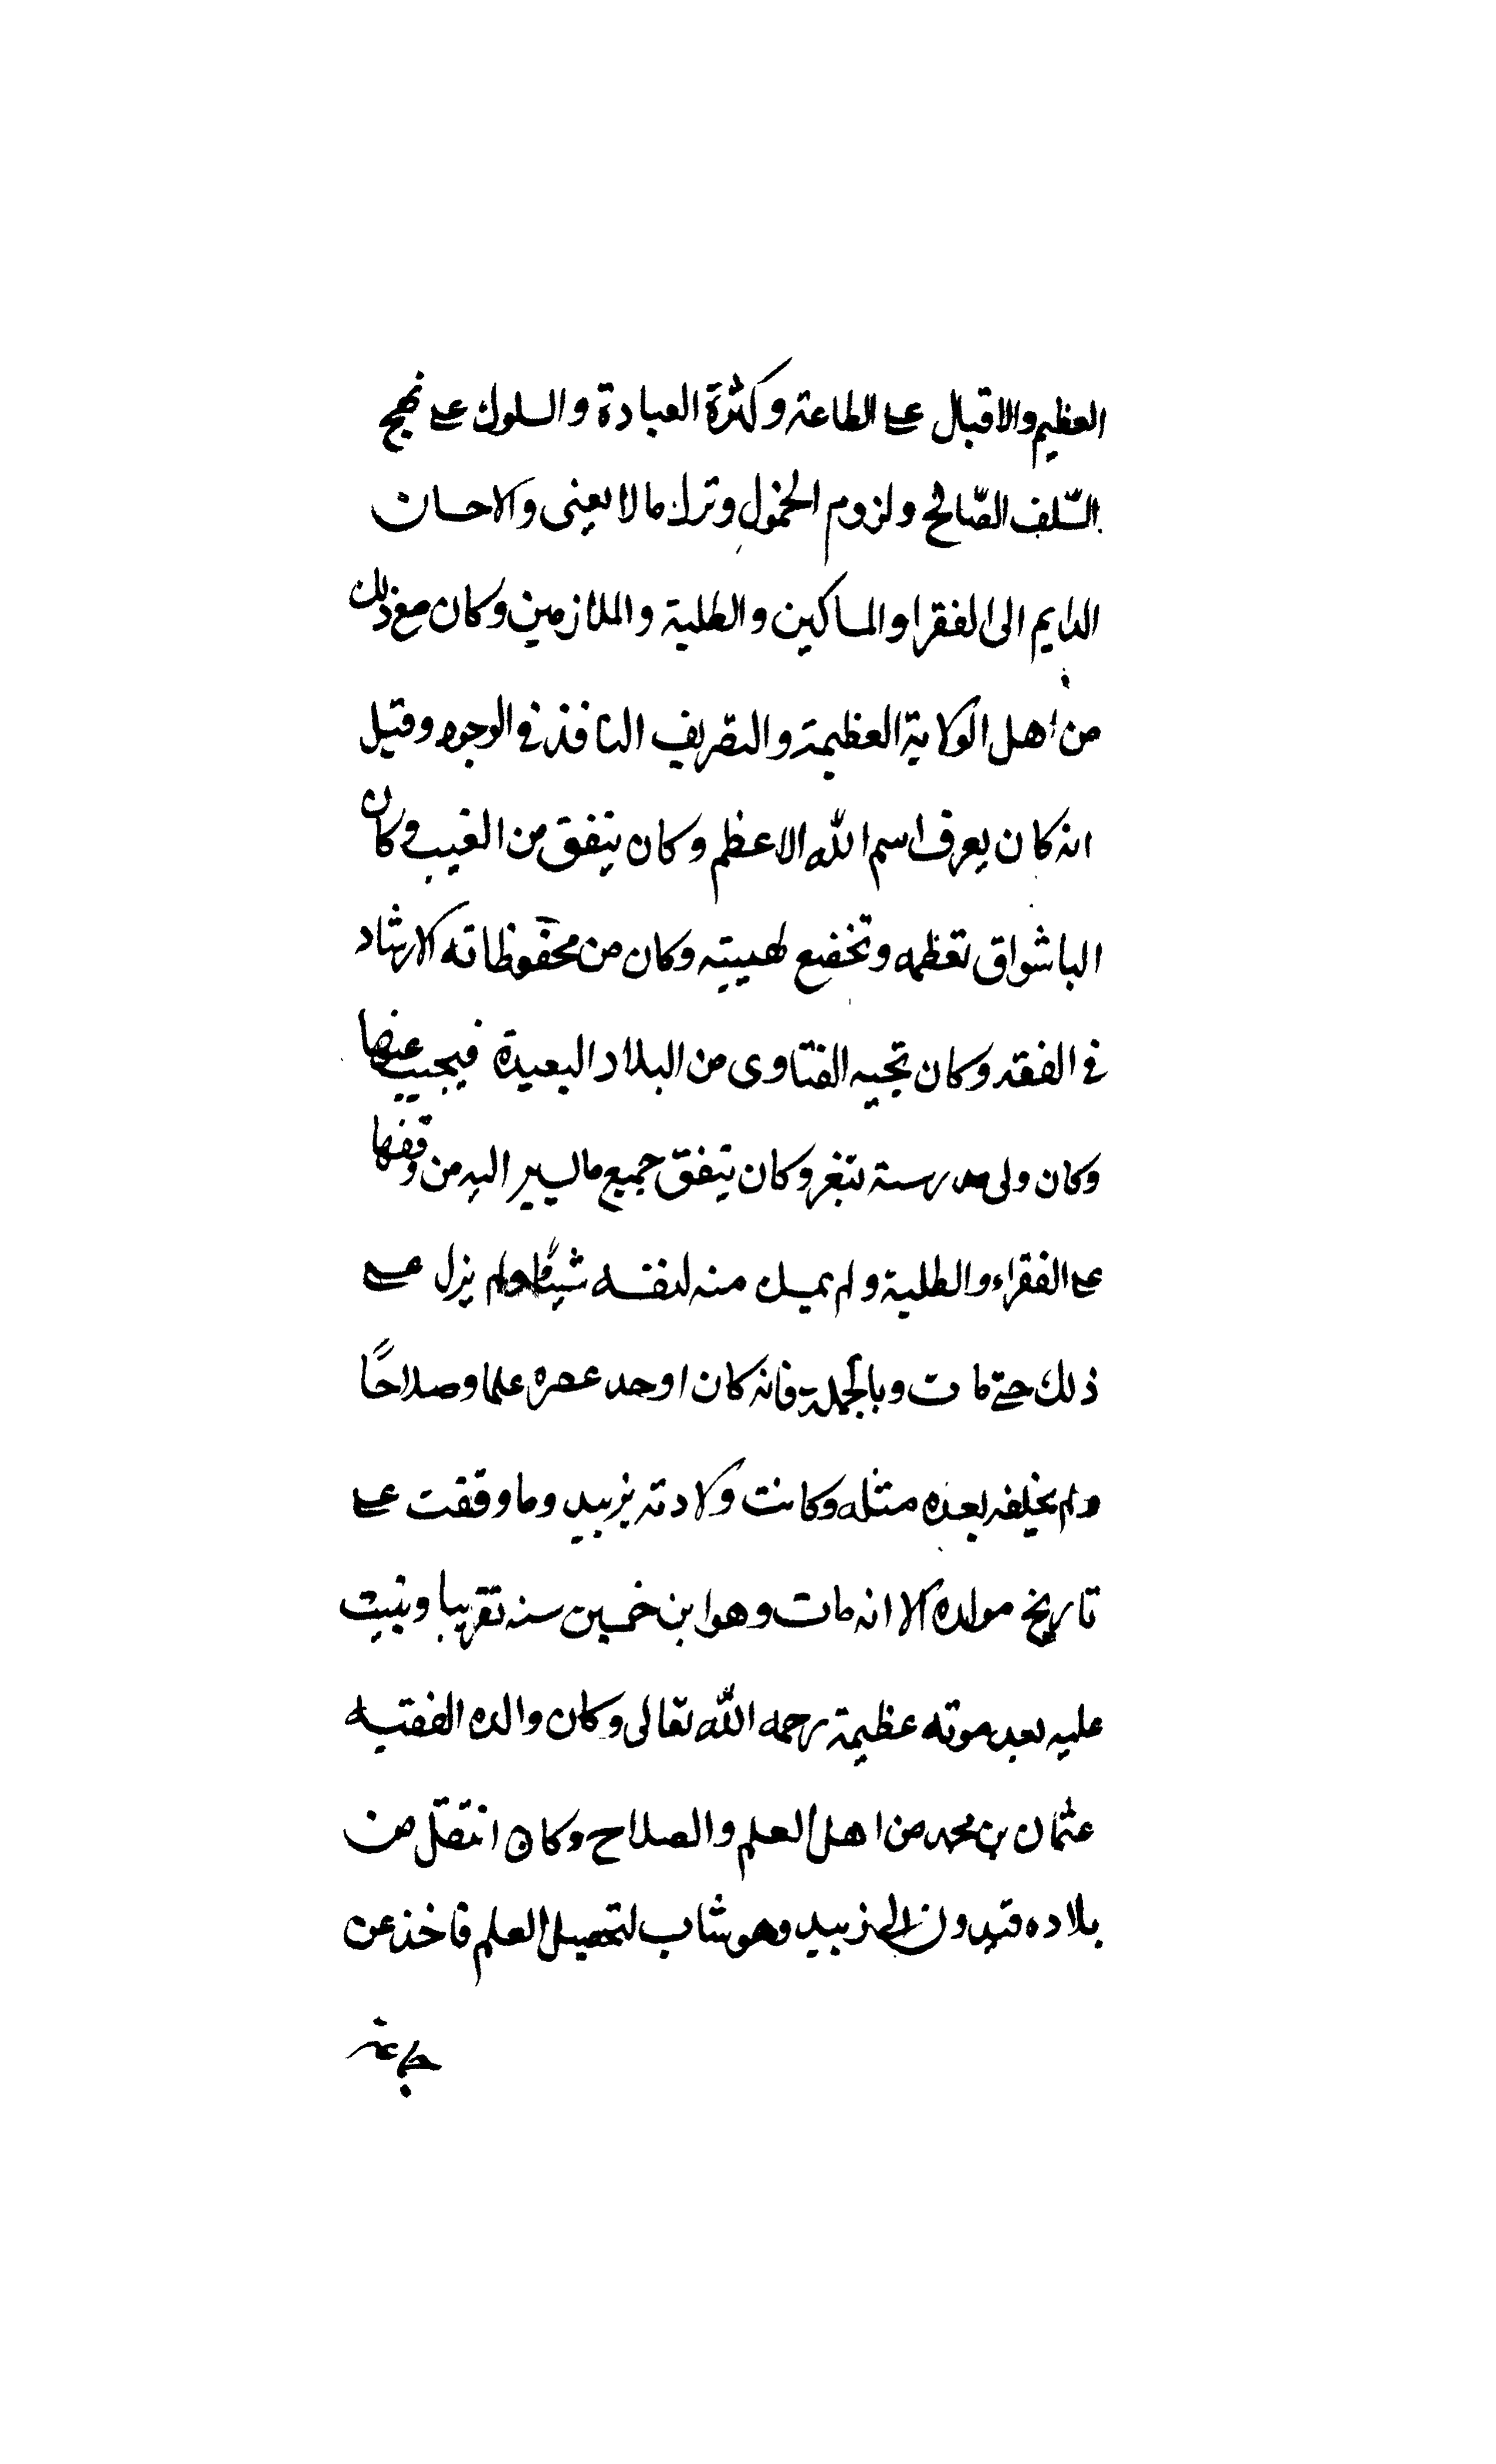 العظيم والاقبال على الطاعة وكثرة العبادة والسلوك على نهج
السّلف الصّالح ولزوم الخمول وترك ما لا يعنى والاحسان
الدايم الى الفقرا والمساكين والطلبة والملازمين وكان مع ذلك
من اهل الولاية العظيمة والتصريف النافذ في الوجود وقيل
انه كان يعرف اسم الله الاعظم وكان ينفق من الغيب وكان
الباشوات تعظمه وتخضع لهيبته وكان من محفوظاته الارشاد
في الفقه وكان تجيه الفتاوى من البلاد البعيدة فيجيب عنها
وكان ولى مدرسة بتعز وكان ينفق جميع ما يسير اليه من وقفها
على الفقراء والطلبة ولم يمسك منه لنفسه شيئًا ولم يزل على
ذلك حتى مات وبالجملة فانه كان اوحد عصره علما وصلاحًا
ولم يخلفه بعده مثله وكانت ولادته بزبيد وما وقفت على
تاريخ مولده الا انه مات وهو ابن خمسين سنه تقريبا وبنيت
عليه بعد موته عظيمة رحمه الله تعالى وكان والده الفقيه
عثمان بن محمد من اهل العلم والصلاح وكان انتقل من
بلاده قيدون الى زبيد وهو شاب لتحصيل العلم فاخذ عن
جماعة